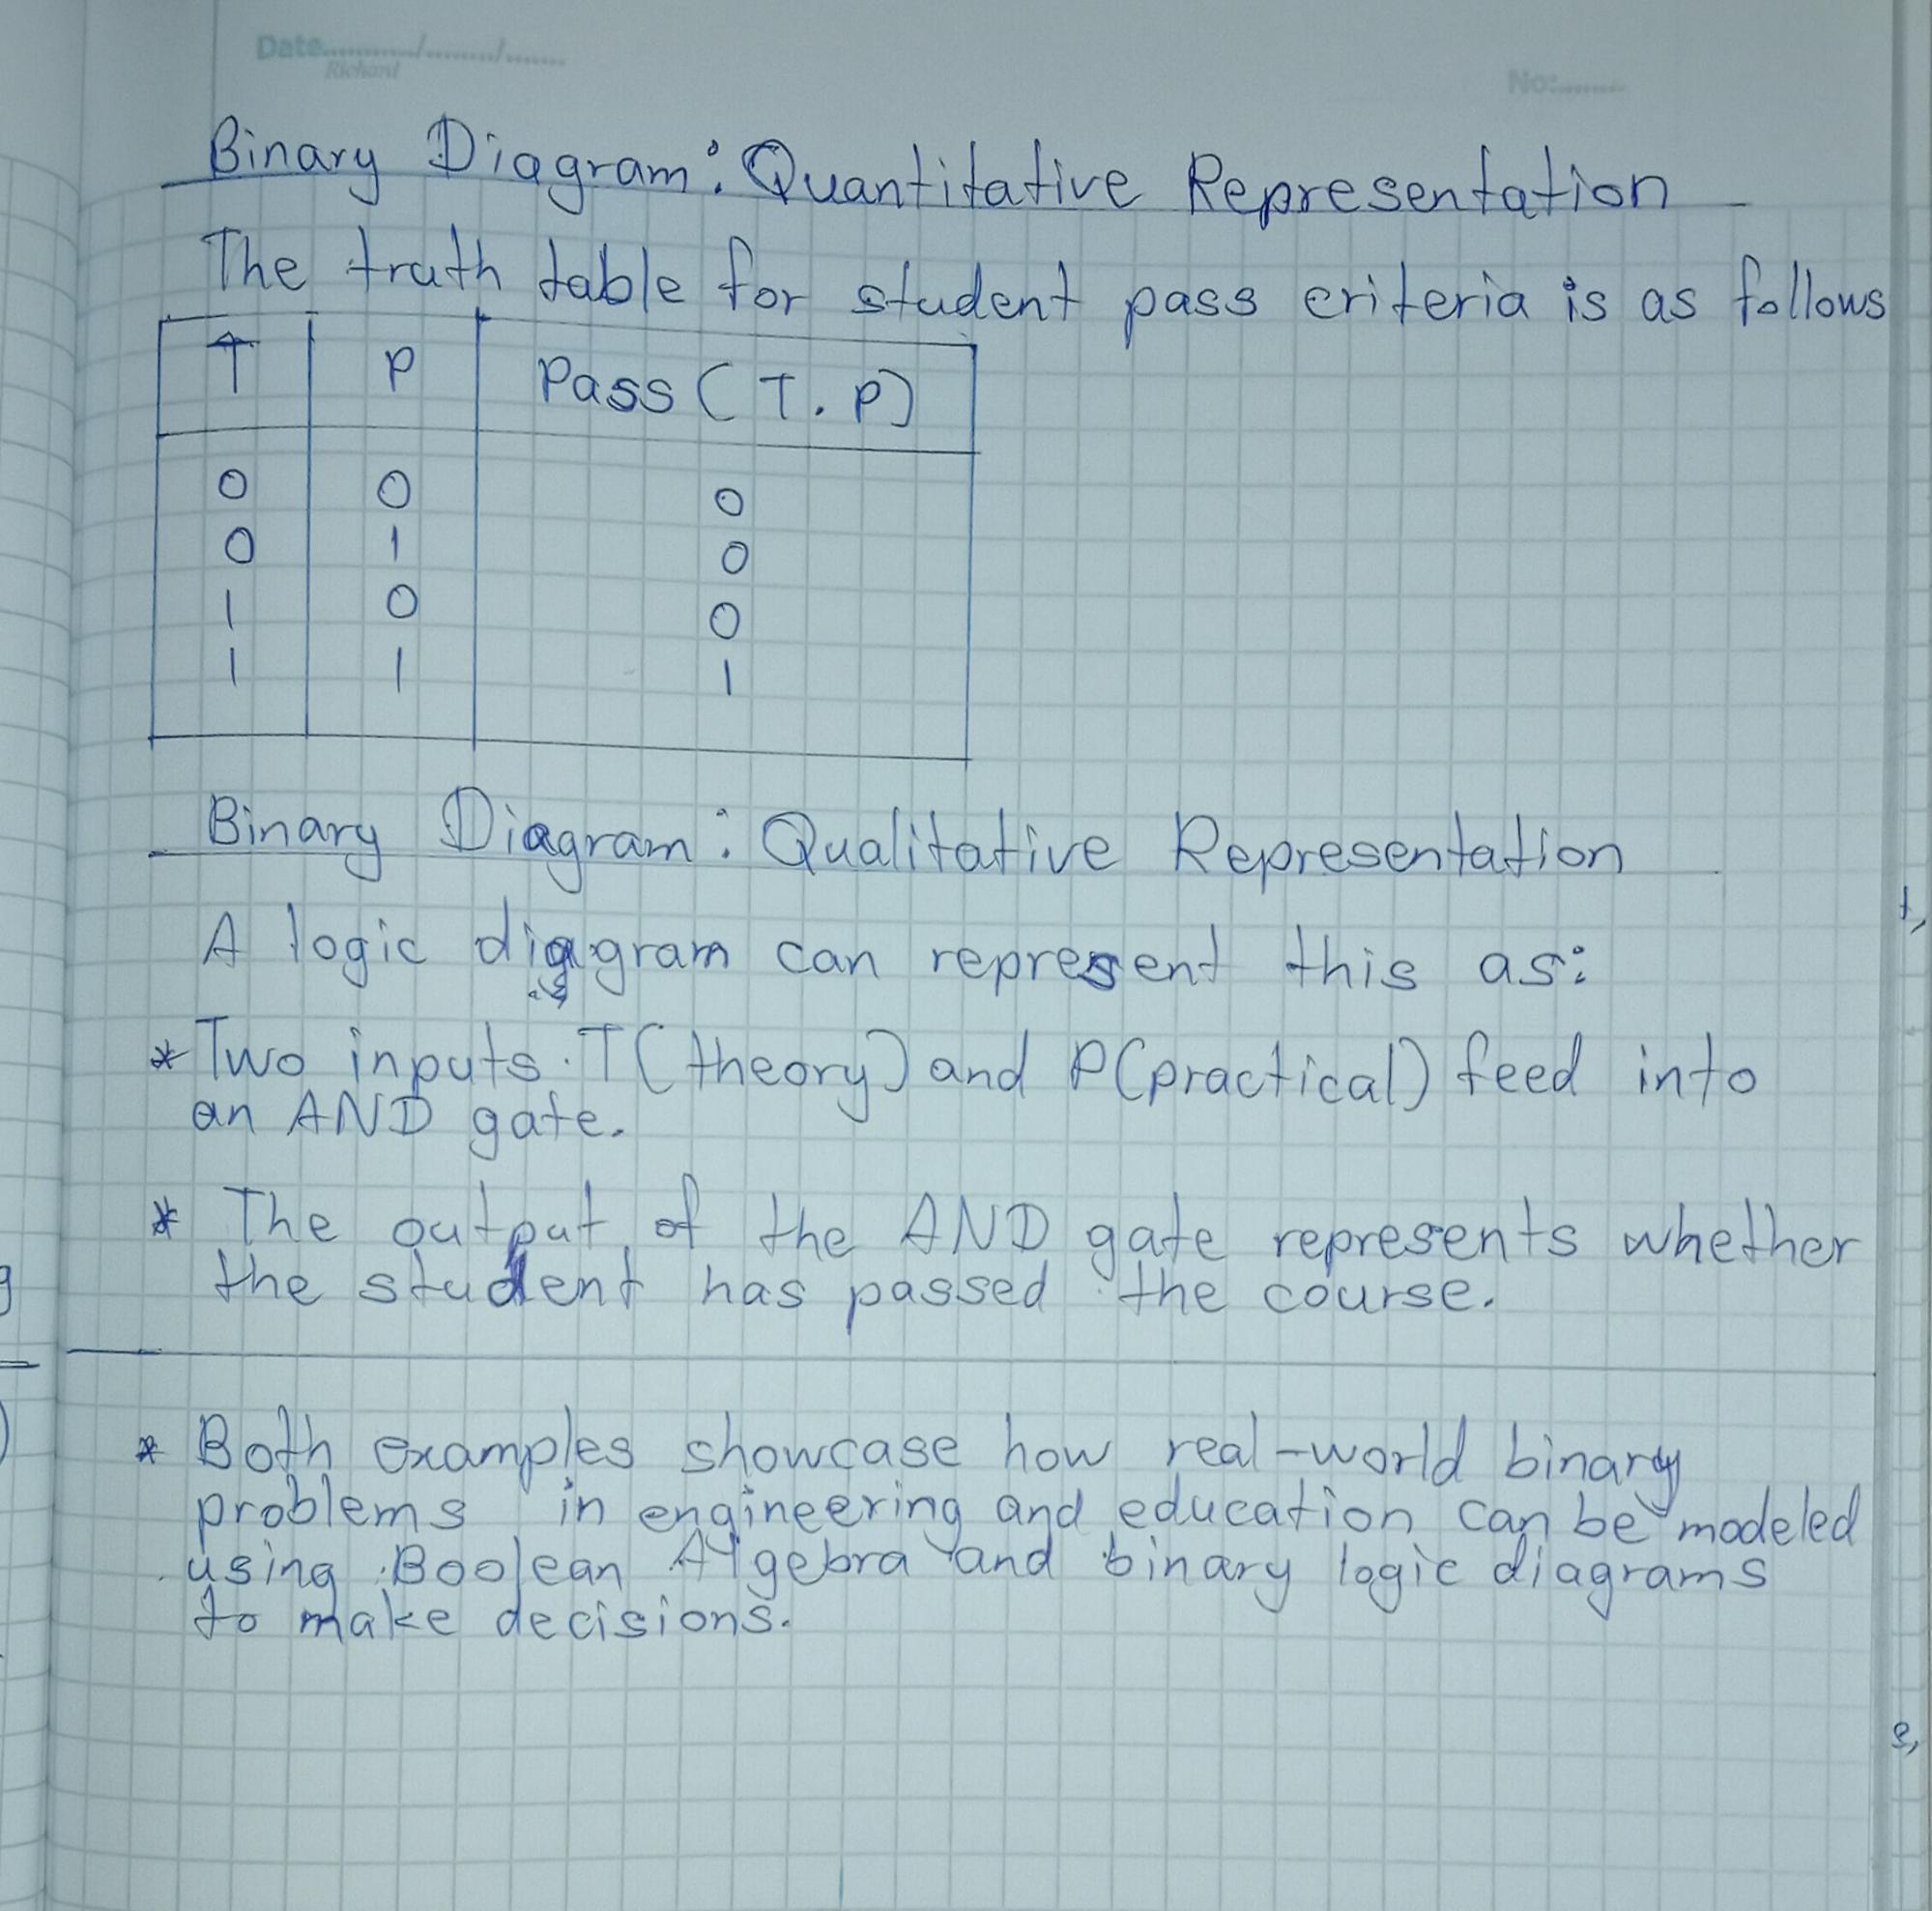 Date........../......../.......
Richard
No:........
Binary Diagram: Quantitative Representation
The truth table for student pass criteria is as follows
T P Pass (T. P)
0 0 0
0 1 0
1 0 0
1 1 1
Binary Diagram: Qualitative Representation
A logic diagram can represent this as:
* Two inputs. T(theory) and P(practical) feed into
an AND gate.
* The output of the AND gate represents whether
the student has passed the course.
* Both examples showcase how real-world binary
problems in engineering and education can be modeled
using Boolean Algebra and binary logic diagrams
to make decisions.